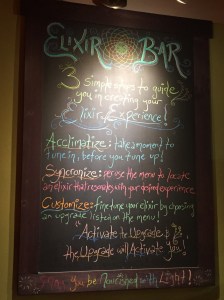 ELIXIR BAR
3 Simple steps to guide
you in creating your
Elixir Experience!
Acclimatize: take a moment to
tune in, before you tune up!
Syncronize: peruse the menu to locate
an elixir that resonates with your desired experience
Customize: fine tune your elixir by choosing
an upgrade listed on the menu!
"Activate to Upgrade &
the Upgrade will Activate You!"
you be Nourished with Light!